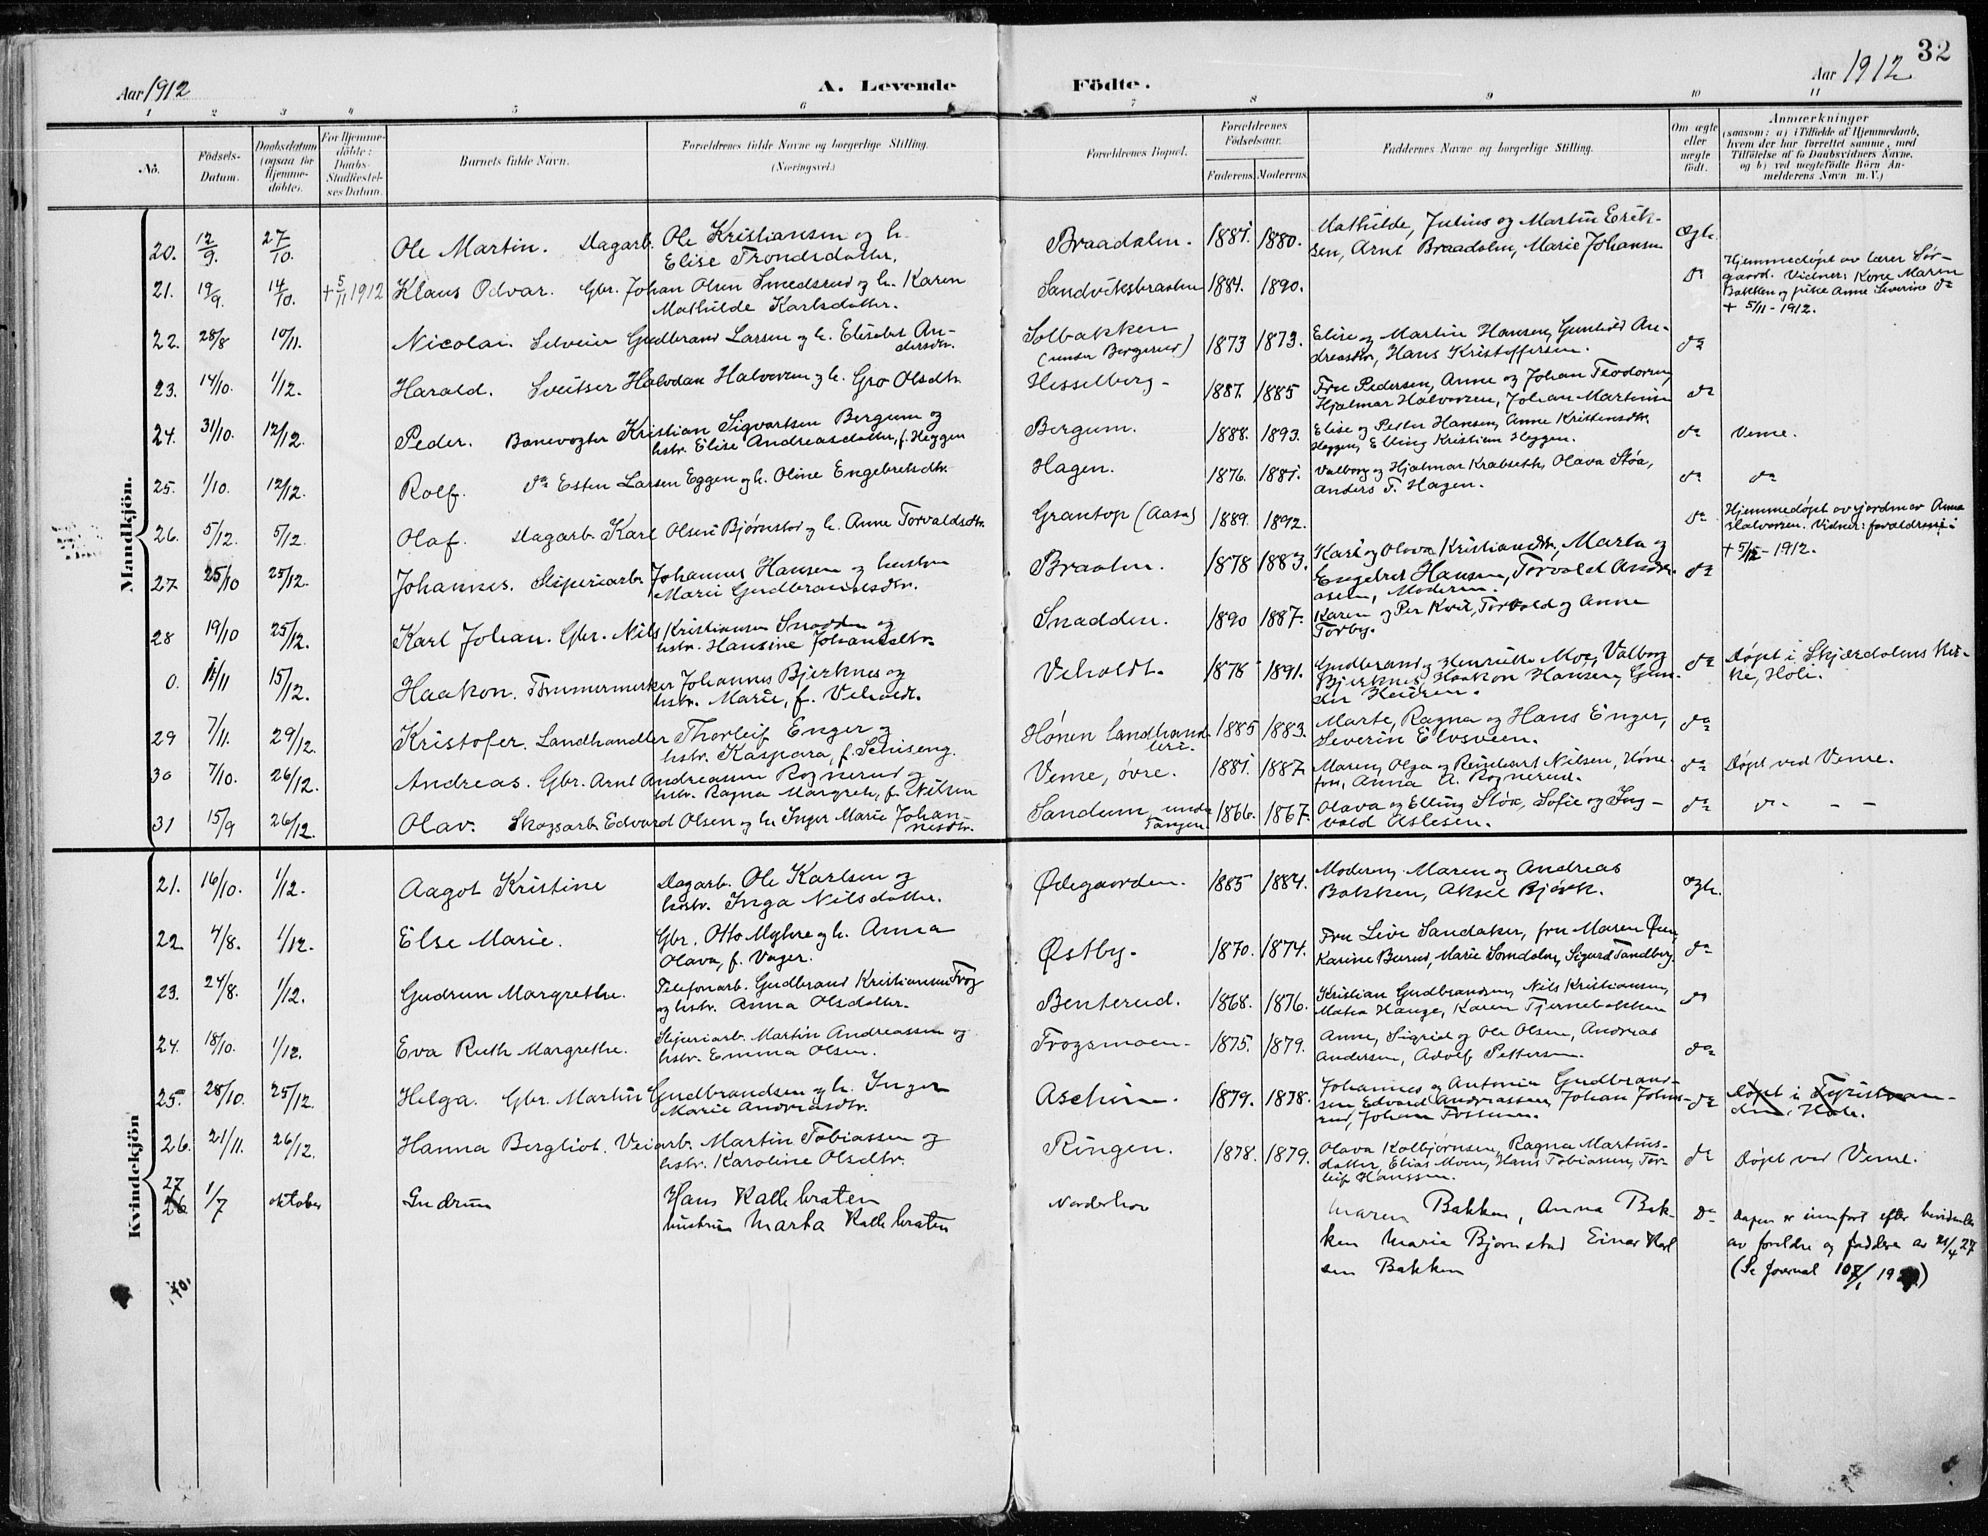 32
Aar 1912
A. Levende Födte.
Aar 1912
1 2 3 4 5 6 7 8 9 10 11
No. Födsels-Datum. Daabsdatum (ogsaa for Hjemmedöbte). For Hjemmedöbte: Daabs-Stadfæstelses Datum. Barnets fulde Navn. Forældrenes fulde Navne og borgerlige Stilling. (Næringsvei.) Forældrenes Bopæl. Forældrenes Födselsaar. Faderens. Moderens. Faddernes Navne og borgerlige Stilling. Om ægte eller uægte födt. Anmærkninger (saasom: a) i Tilfælde af Hjemmedaab, hvem der har forrettet samme, med Tilföielse af to Daabsvidners Navne, og b) ved uægtefödte Börn Anmelderens Navn m. V.)
Mandkjön.
20. 12/9. 27/10. Ole Martin. Dagarb. Ole Kristiansen og h. Elise Trondsdatter. Braadalen. 1881. 1880. Mathilde, Julius og Martin Eriksen, Arnt Braadalen, Marie Johansen Ægte.
21. 19/9. 14/10. + 5/11 1912 Klaus Odvar. Gbr. Johan Olsen Smedsrud og h. Karen Mathilde Karlsdatter. Sandviksbraaten 1884. 1890. do Hjemmedøpt av lærer Sørgaard. Vidner: Kone Maren Bakken og pike Anne Severine do + 5/11 - 1912.
22. 28/8 10/11. Nicolai. Selveier Gudbrand Larsen og h. Elisabet Andersdtr. Solbakken (under Bergerud) 1873 1873. Elise og Martin Hansen, Gunhild Andreasdtr, Hans Kristoffersen. do
23. 14/10. 1/12. Harald. Sveitser Halvdan Halvorsen og h. Gro Olsdtr. Hesselberg. 1887. 1885 Fru Pedersen, Anne og Johan Teodorsen, Hjalmar Halvorsen, Johan Martinsen do
24. 31/10. 12/12. Peder. Banevogter Kristian Sigvartsen Bergum og hstr. Elise Andreasdatter, f. Heggen Bergum. 1888. 1893. Elise og Petter Hansen, Anne Kristensdtr. Heggen, Elling Kristian Heggen. do Veme.
25. 1/10. 12/12. Rolf. do Esten Larsen Eggen og h. Oline Engebretsdtr. Hagen. 1876. 1881. Valborg og Hjalmar Krabseth, Olava Støa, Anders T. Hagen. do do
26. 5/12. 5/12. Olaf. Dagarb. Karl Olsen Bjørnstad og h. Anne Torvaldsdtr. Grantop (Aasa) 1889. 1892. do Hjemmedøpt av jordmor Anna Halvorsen. Vidner: forældrene + 5/12 - 1912.
27 25/10 25/12. Johannes. Sliperiarb. Johannes Hansen og hustru Marie Gudbrandsdtr. Braaten. 1878 1883. Kari og Olava Kristiansdtr, Marta og Engebret Hansen, Torvald Andreasen, Moderen. do
28 19/10 25/12. Karl Johan. Gbr. Nils Kristiansen Snadden og hstr. Hansine Johansdtr. Snadden. 1890 1887. Karen og Per Kvil, Torvald og Anne Torby.
0. 11/11 15/12. Haakon. Tømmermerker Johannes Bjerknes og hstr. Marie, f. Veholdt. Veholdt. 1878 1891. Gudbrand og Henriette Moe, Valborg Bjerknes, Haakon Hansen, do Døpt i Skjærdalens Kirke, Hole.
29 7/11. 29/12. Kristofer. Landhandler Thorleif Enger og hstr. Kaspara, f. Hønen landhandleri. 1885 1883. Marte, Ragna og Hans Enger, Severin Elvsveen. do
30 7/10. 26/12. Andreas. Gbr. Arnt Andreassen Rognerud og hstr. Ragna Margrete, f. Nilsen Veme, øvre. 1881. 1887 Maren, Olga og Reinhart Nilsen, Hønefos, Anna A. Rognerud. do Døpt ved Veme.
31 15/9 26/12. Olav. Skogsarb. Edvard Olsen og h. Inger Marie Johannesdtr. Sandum under Tangen. 1866. 1867. Olava og Elling Støa, Sofie og Ingvald Aslesen. do do - -
Kvindekjön
21. 16/10. 1/12. Aagot Kristine Dagarb. Ole Karlsen og hstr. Inga Nilsdatter. Ødegaarden. 1885 1884. Moderen, Maren og Andreas Bakken, Aksel Bjørk. Ægte.
22 4/8. 1/12. Else Marie. Gbr. Otto Myhre og h. Anna Olava, f. Vager. Østby. 1870. 1874. Fru Live Sandaker, fru Maren Øen, Karine Burud, Marie Somdalen, Sigurd Tandberg. do
23. 24/8. 1/12. Gudrun Margrethe. Telefonarb. Gudbrand Kristiansen Frog og hstr. Anna Olsdatter. Benterud. 1868. 1876. Kristian Gudbrandsen, Nils Kristiansen, Matea Hauge, Karen Tjernsbakken do
24. 18/10. 1/12. Eva Ruth Margrethe. Sliperiarb. Martin Andreassen og hstr. Emma Olsen. Frogsmoen. 1875. 1879. Anne, Sigrid og Ole Olsen, Andreas Andersen, Adolf Pettersen. do
25. 28/10. 25/12. Helga. Gbr. Martin Gudbrandsen og h. Inger Marie Andreasdtr. Aschim. 1879. 1878. Johannes og Antonia Gudbrandsen Edvard Andreassen, Johan do Døpt i Tyristranden, Hole.
26. 21/11. 26/12. Hanna Bergliot. Veiarb. Martin Tobiassen og hstr. Karoline Olsdtr. Ringen. 1878. 1879. Olava Kolbjørnsen, Ragna Martinsdatter, Elias Moen, Hans Tobiassen, Torleif Hanssen. do Døpt ved Veme.
27 26 1/7 oktober Gudrun Hans Kallebraten hustru Marta Kallebraten Norderhov Maren Bakken, Anna Bakken Marie Bjørnstad Einar Karlsen Bakken Do Dagen er innført efter bevidnelse av foreldre og faddere av 21/4 27 (Se Journal 107/ 19 )